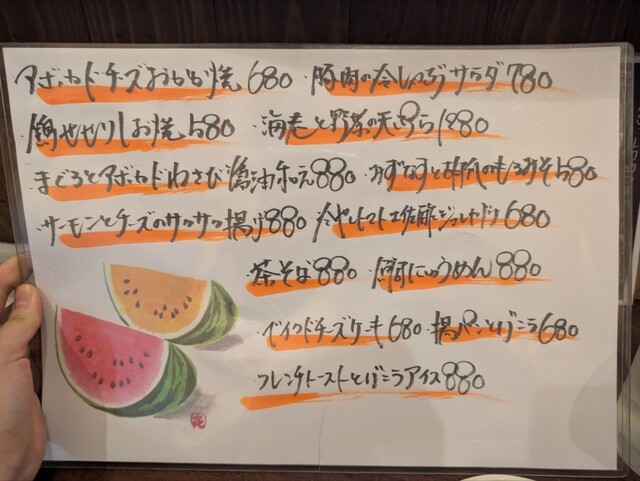 アボカドチーズおかか焼680 ・豚肉の冷しゃぶサラダ780
・鶏せせりしお焼580 ・海老と野菜の天ぷら1280
・まぐろとアボカドわさび醤油和え880 ・みずなすと胡瓜のもろみそ580
・サーモンとチーズのサクサク揚げ880 ・冷やしトマト土佐酢ジュレ680
・茶そば880 ・にゅうめん880
・ベイクドチーズケーキ680 ・揚パンとバニラ680
・フレンチトーストとバニラアイス880